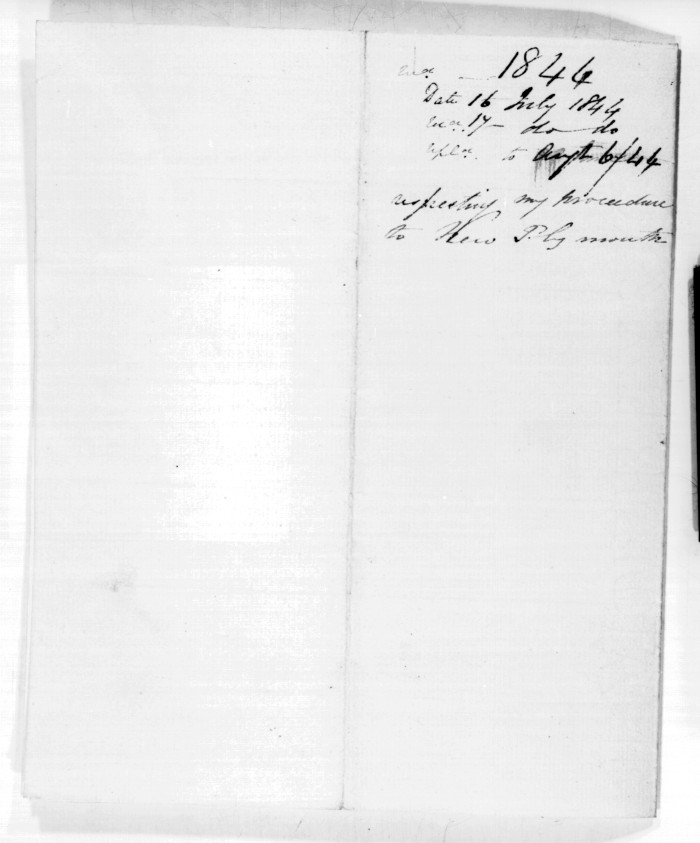 1844
Date 16 July 1844
17 do do
to Augt 6/44
respecting my procedure
to New Plymouth